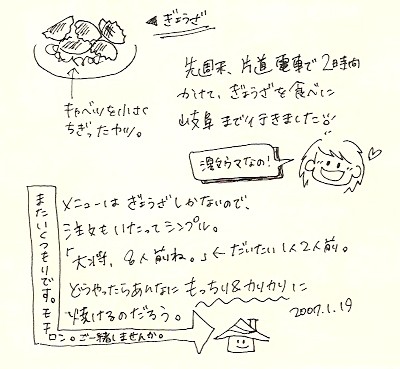 ぎょうざ
キャベツを小さく
ちぎったヤツ。
先週末、片道電車で2時間
かけて、ぎょうざを食べに
岐阜まで行きました
激ウマなの!
メニューはぎょうざしかないので、
注文もいたってシンプル。
「大将、8人前ね。」←だいたい1人2人前。
どうやったらあんなにもっちり&カリカリに
焼けるのだろう。
2007.1.19
またいくつもりです。モチロン。ご一緒しませんか。